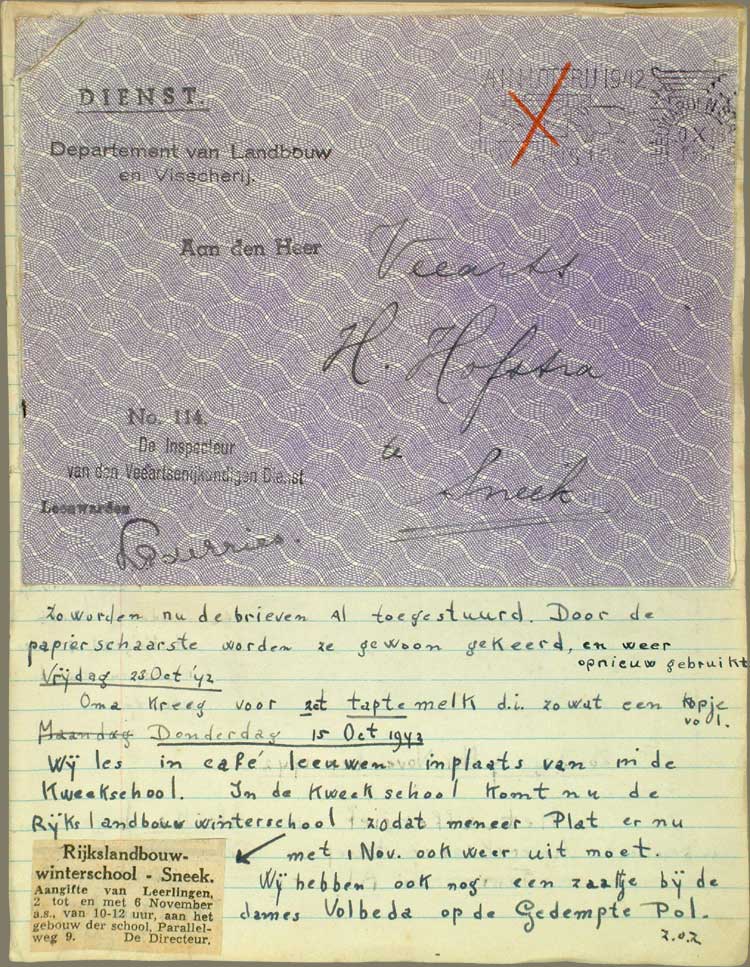 DIENST.
Departement van Landbouw
en Visscherij.
1942
Aan den Heer
Veearts
H. Hofstra
te
Sneek
No. 114.
De Inspecteur
van den Veeartsenijkundigen Dienst
Leeuwarden
zo worden nu de brieven al toegestuurd. Door de
papierschaarste worden ze gewoon gekeerd, en weer
opnieuw gebruikt
Vrijdag 23 Oct '42
Oma kreeg voor zet taptemelk d.i. zowat een kopje
vol.
Maandag Donderdag 15 Oct 1942
Wij les in café leeuwen inplaats van in de
Kweekschool. In de Kweekschool komt nu de
Rijkslandbouwwinterschool zodat meneer Plat er nu
met 1 Nov. ook weer uit moet.
Wij hebben ook nog een zaaltje bij de
dames Volbeda op de Gedempte Pol.
z.o.z
Rijkslandbouw-
winterschool - Sneek.
Aangifte van Leerlingen,
2 tot en met 6 November
a.s., van 10-12 uur, aan het
gebouw der school, Parallel-
weg 9. De Directeur.